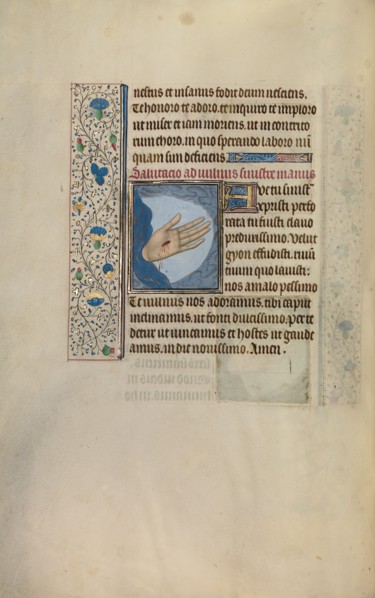 nescius et insanus fodit deum nesciens.
Te honoro te adoro. te inquiro te imploro
ut miser et iam moriens. ut in contrito
tuum choro. in quo sperando laboro
quam sim deficiens
Salutacio ad vulnus sinistre manus
Ave tu
perfo
rata tu fuisti clavo
predurissimo. Velut
gyon effudisti.
tuum quo lavisti:
nos a malo pessimo
Te vulnus nos adoramus. tibi caput
inclinamus. ut fonti dulcissimo. per te
detur ut vincamus et hostes ut gaude
amus. in die novissimo. Amen.